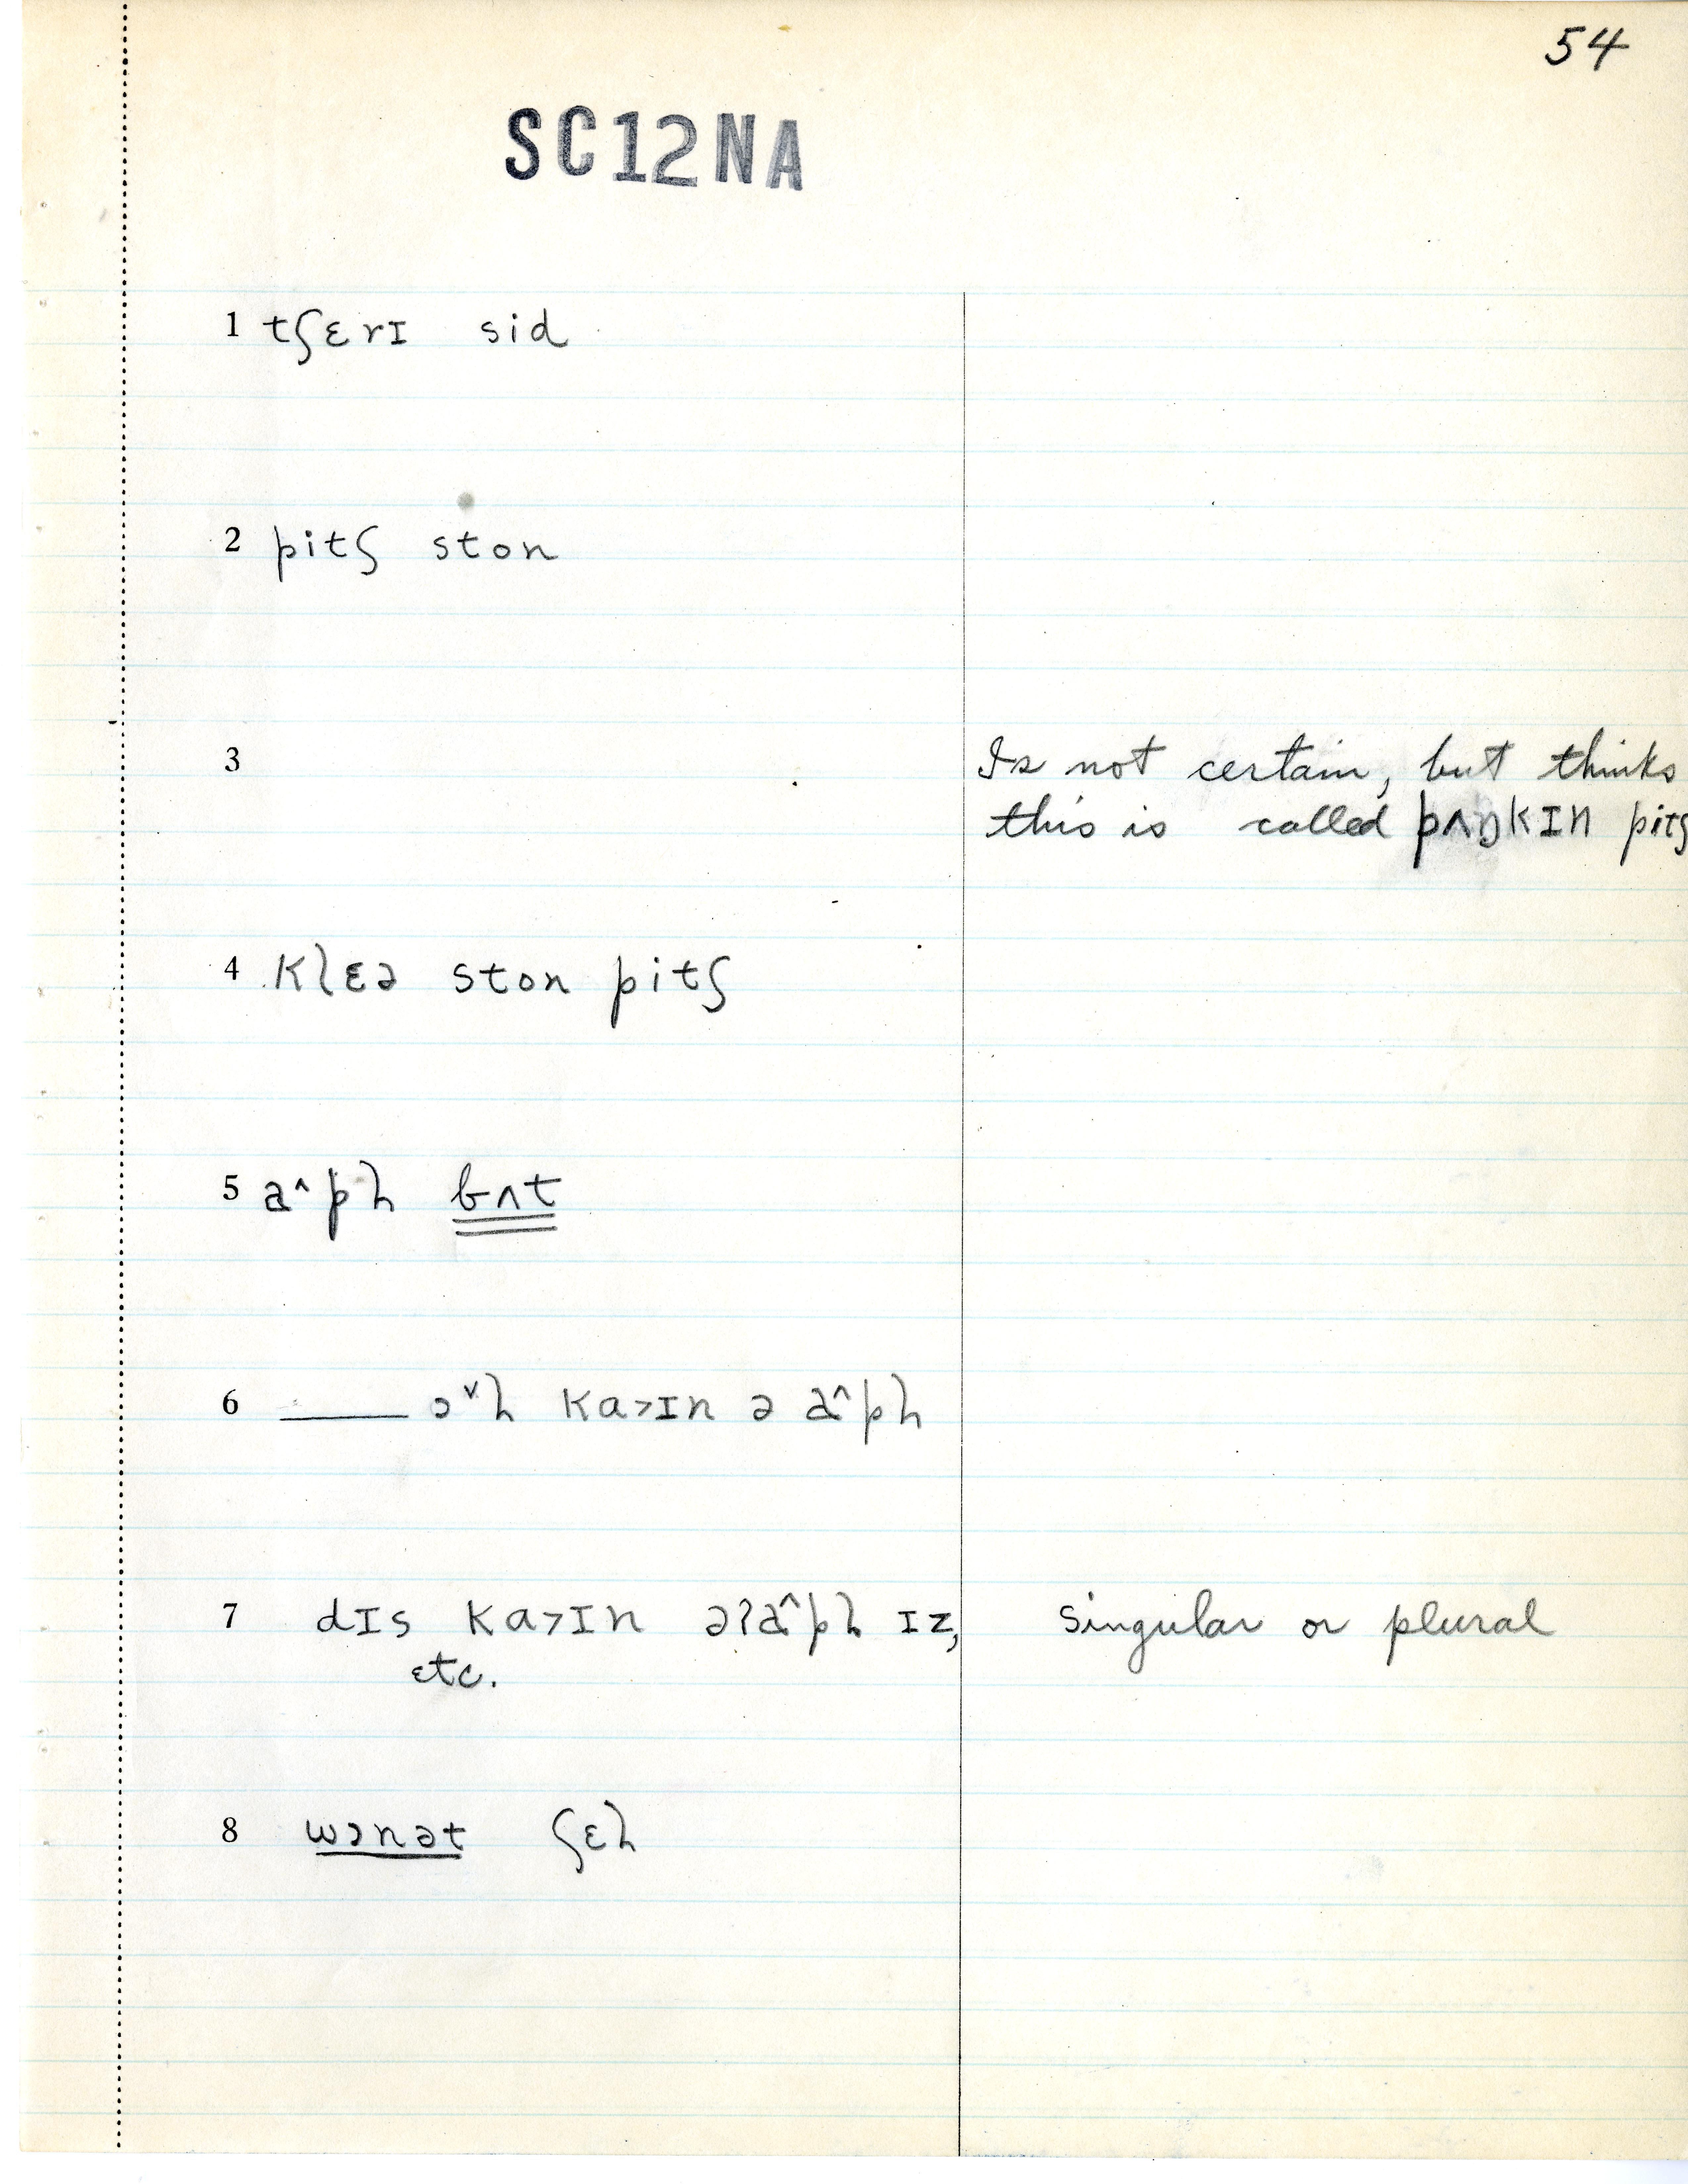 54
SC12NA
1 tʃɛrɪ sid
2 pitʃ ston
3 Is not certain, but thinks
this is called pʌŋkɪn pitʃ
4 klɛə ston pitʃ
5 a^pl bʌt
6 ____ ɔˇl kɑ>ɪn ə a^pl
7 dɪs kɑ>ɪn əʔa^pl ɪz, singular or plural
etc.
8 wɔnət ʃɛl